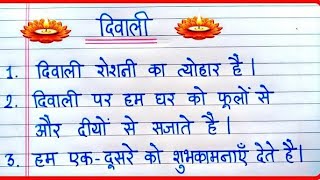 दिवाली
1. दिवाली रोशनी का त्योहार है।
2. दिवाली पर हम घर को फूलों से
और दीयों से सजाते है।
3. हम एक-दूसरे को शुभकामनाएँ देते है।